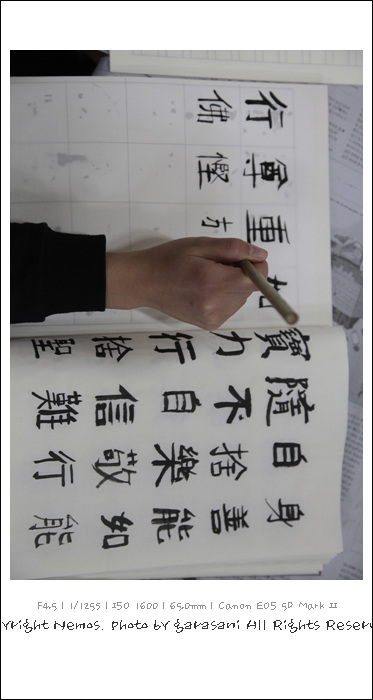 行尊重如
佛慳
寶隨自身
力不捨善
行自樂能
捨信敬如
聖難行能
F4.5 | 1/125s | ISO 1600 | 65.0mm | Canon EOS 5D Mark II
yright Nemos. Photo by garasani All Rights Reser